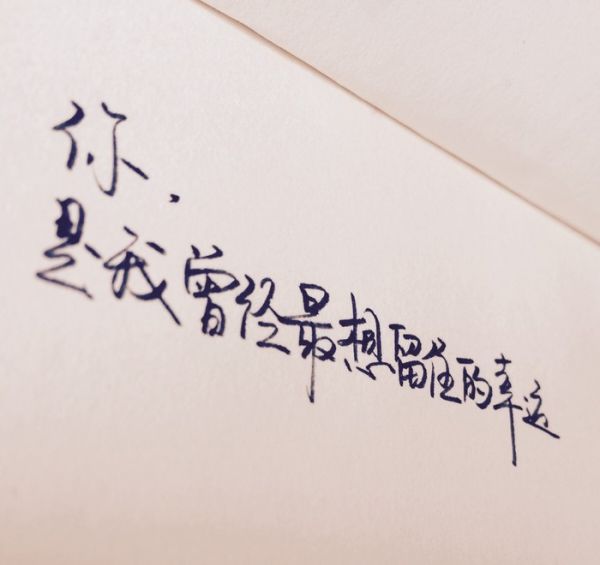 你，
是我曾经最想留住的幸运